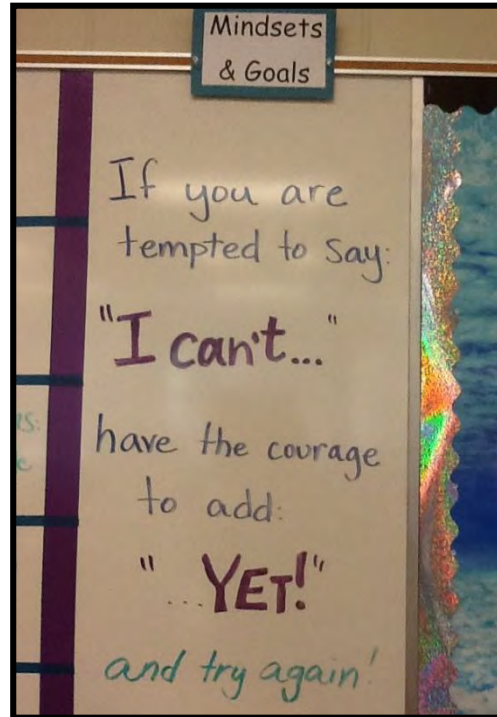 Mindsets
& Goals
If you are
tempted to say:
"I can't..."
have the courage
to add:
"...YET!"
and try again!